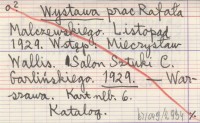 a²
Wystawa prac Rafała
Malczewskiego. Listopad
1929. Wstęp. Mieczysław
Wallis. Salon Sztuki C.
Garlińskiego. 1929. — War-
szawa. Kart nlb. 6.
Katalog.